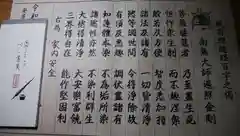 般若理趣経百字之偈
南無大師遍照金剛
菩薩勝慧者 乃至盡生死
恒作衆生利 而不趣涅槃
般若及方便 智度悉加持
諸法及諸有 一切皆清淨
欲等調世間 令得淨除故
有頂及惡趣 調伏盡諸有
如蓮體本染 不為垢所染
諸慾性亦然 不染利群生
大欲得清淨 大安樂富饒
三界得自在 能作堅固利
右為 家内安全
令和